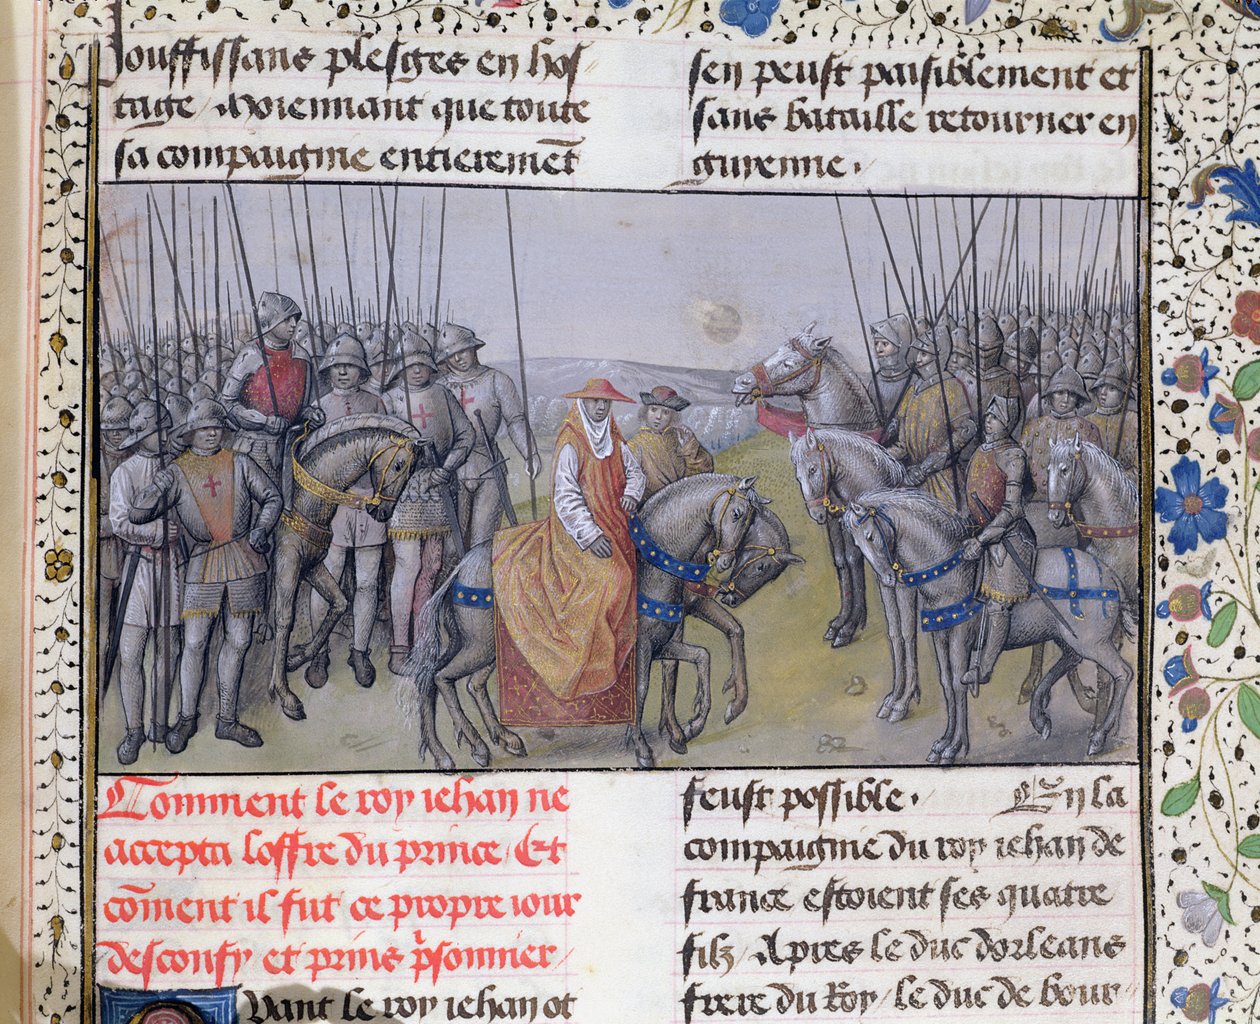 souffissans plesges en hos
tage / Moiennant que toute
sa compaignie entieremēt
sen peust paisiblement et
sans bataille retourner en
guienne .
Comment le roy iehan ne
accepta loffre du prince / Et
cōment il fut ce propre iour
desconfy et prins p̓sonnier /
Quant le roy iehan ot
feust possible . En la
compaignie du roy iehan de
france estoient ses quatre
filz / Apres le duc dorleans
frere du Roy / le duc de bour